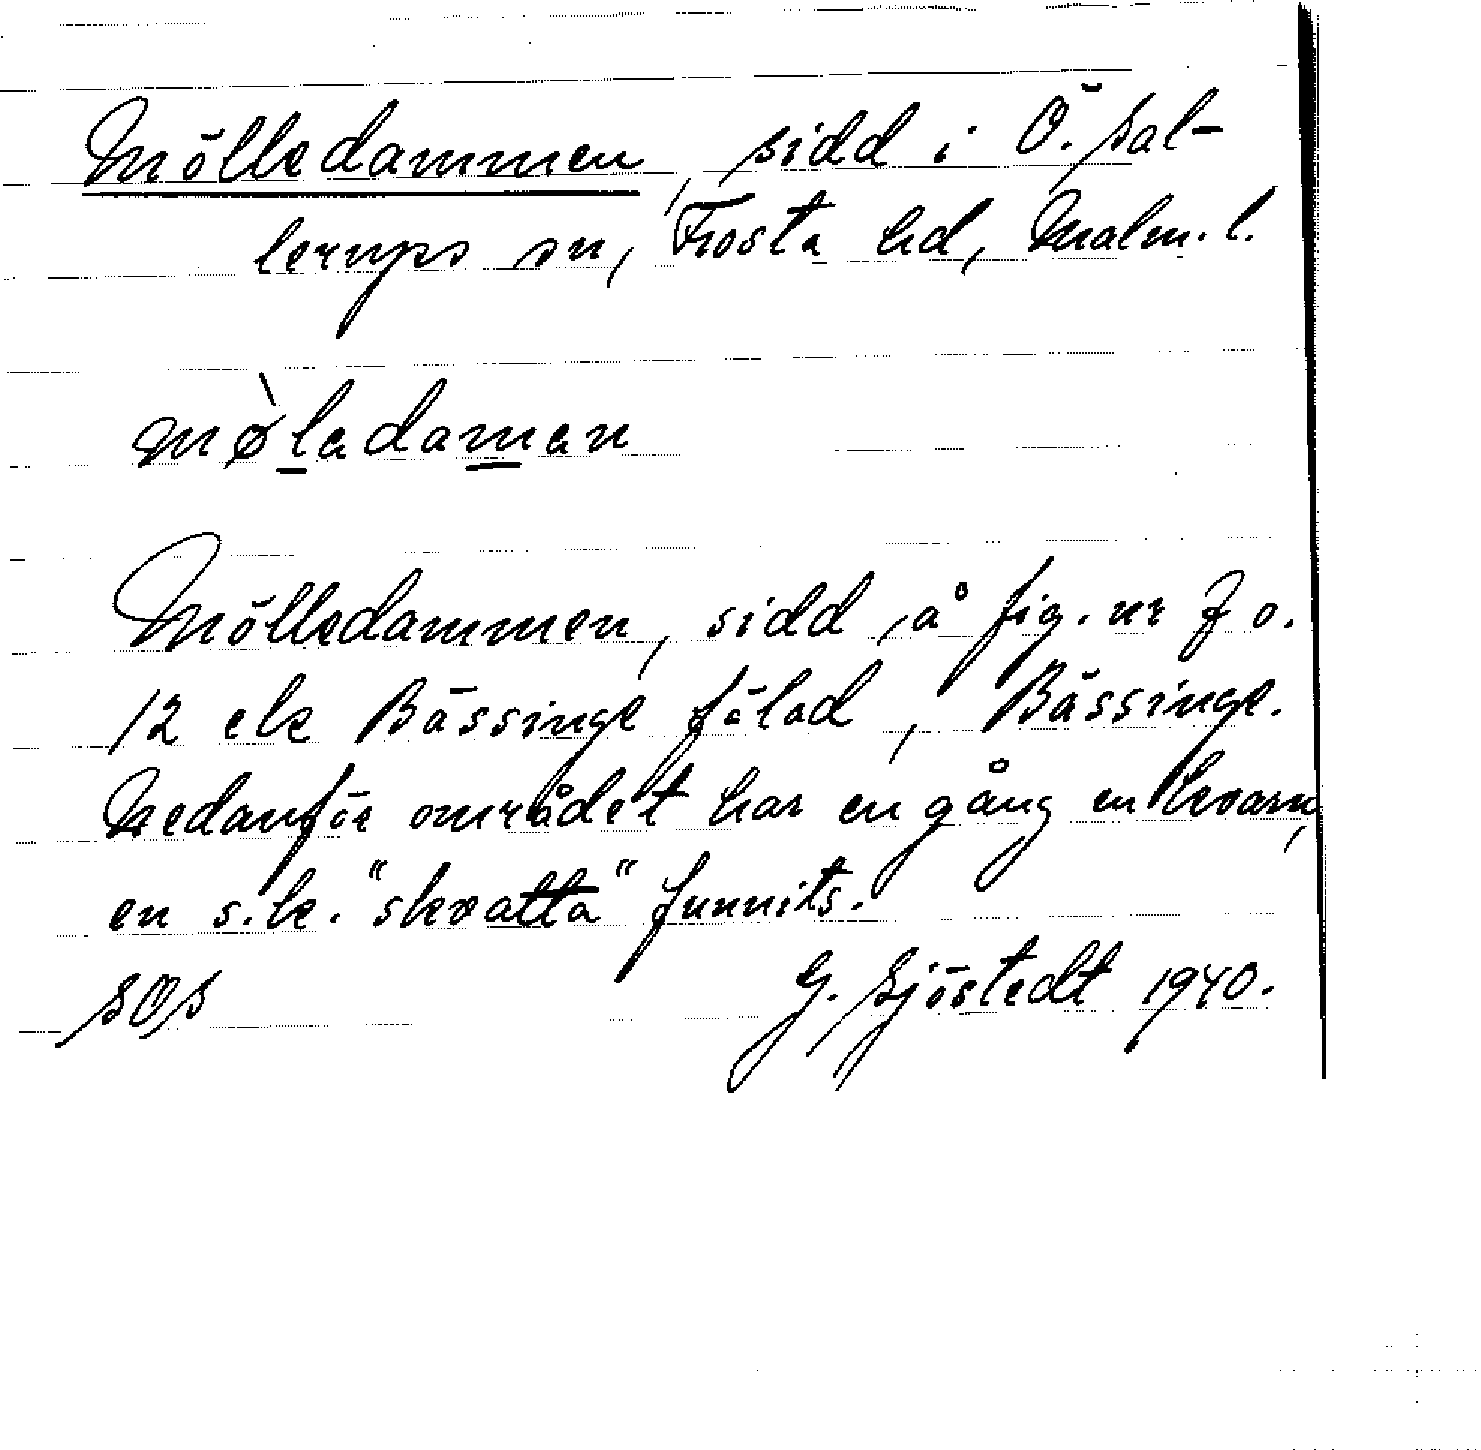 Mölledammen, sidd i Ö. Sal-
lerups sn, Frosta hd, Malm. l.
mø̀ladaman
Mölledammen, sidd, å fig. nr 7 o.
12 ek Bässinge fälad, Bässinge.
Nedanför området har en gång en kvarn,
en s.k. "skvatta" funnits.
SOS G. Sjöstedt 1940.